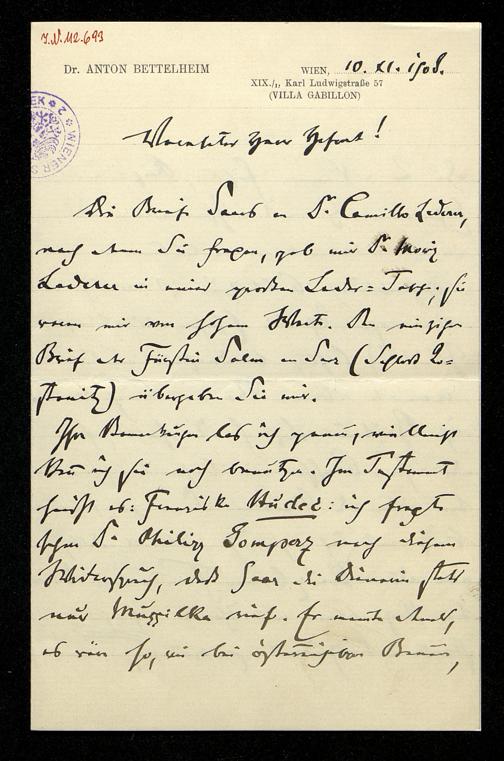 I.N. 112.693
Dr. ANTON BETTELHEIM
WIEN, 10. XI. 1908.
XIX./1, Karl Ludwigstraße 57
(VILLA GABILLON)
WIENER
Verehrter Herr Hofrat!
Die Briefe Saars an Dr. Camillo Lederer,
nach denen Sie fragen, gab mir Dr. Moriz
Lederer in einer großen Leder-Tasche; sie
waren mir von hohem Werte. Den einzigen
Brief der Fürstin Salm an Saar (Schloß
) übergeben Sie mir.
Ihre Bemerkungen las ich genau, vielleicht
kann ich sie noch benutzen. Im Testament
heißt es: Franziska Hudez: ich fragte
schon Dr. Philipp Gomperz nach diesem
Widerspruch, daß Saar die Dienerin stets
nur rief. Er meinte damals,
es wäre so, wie bei österreichischen